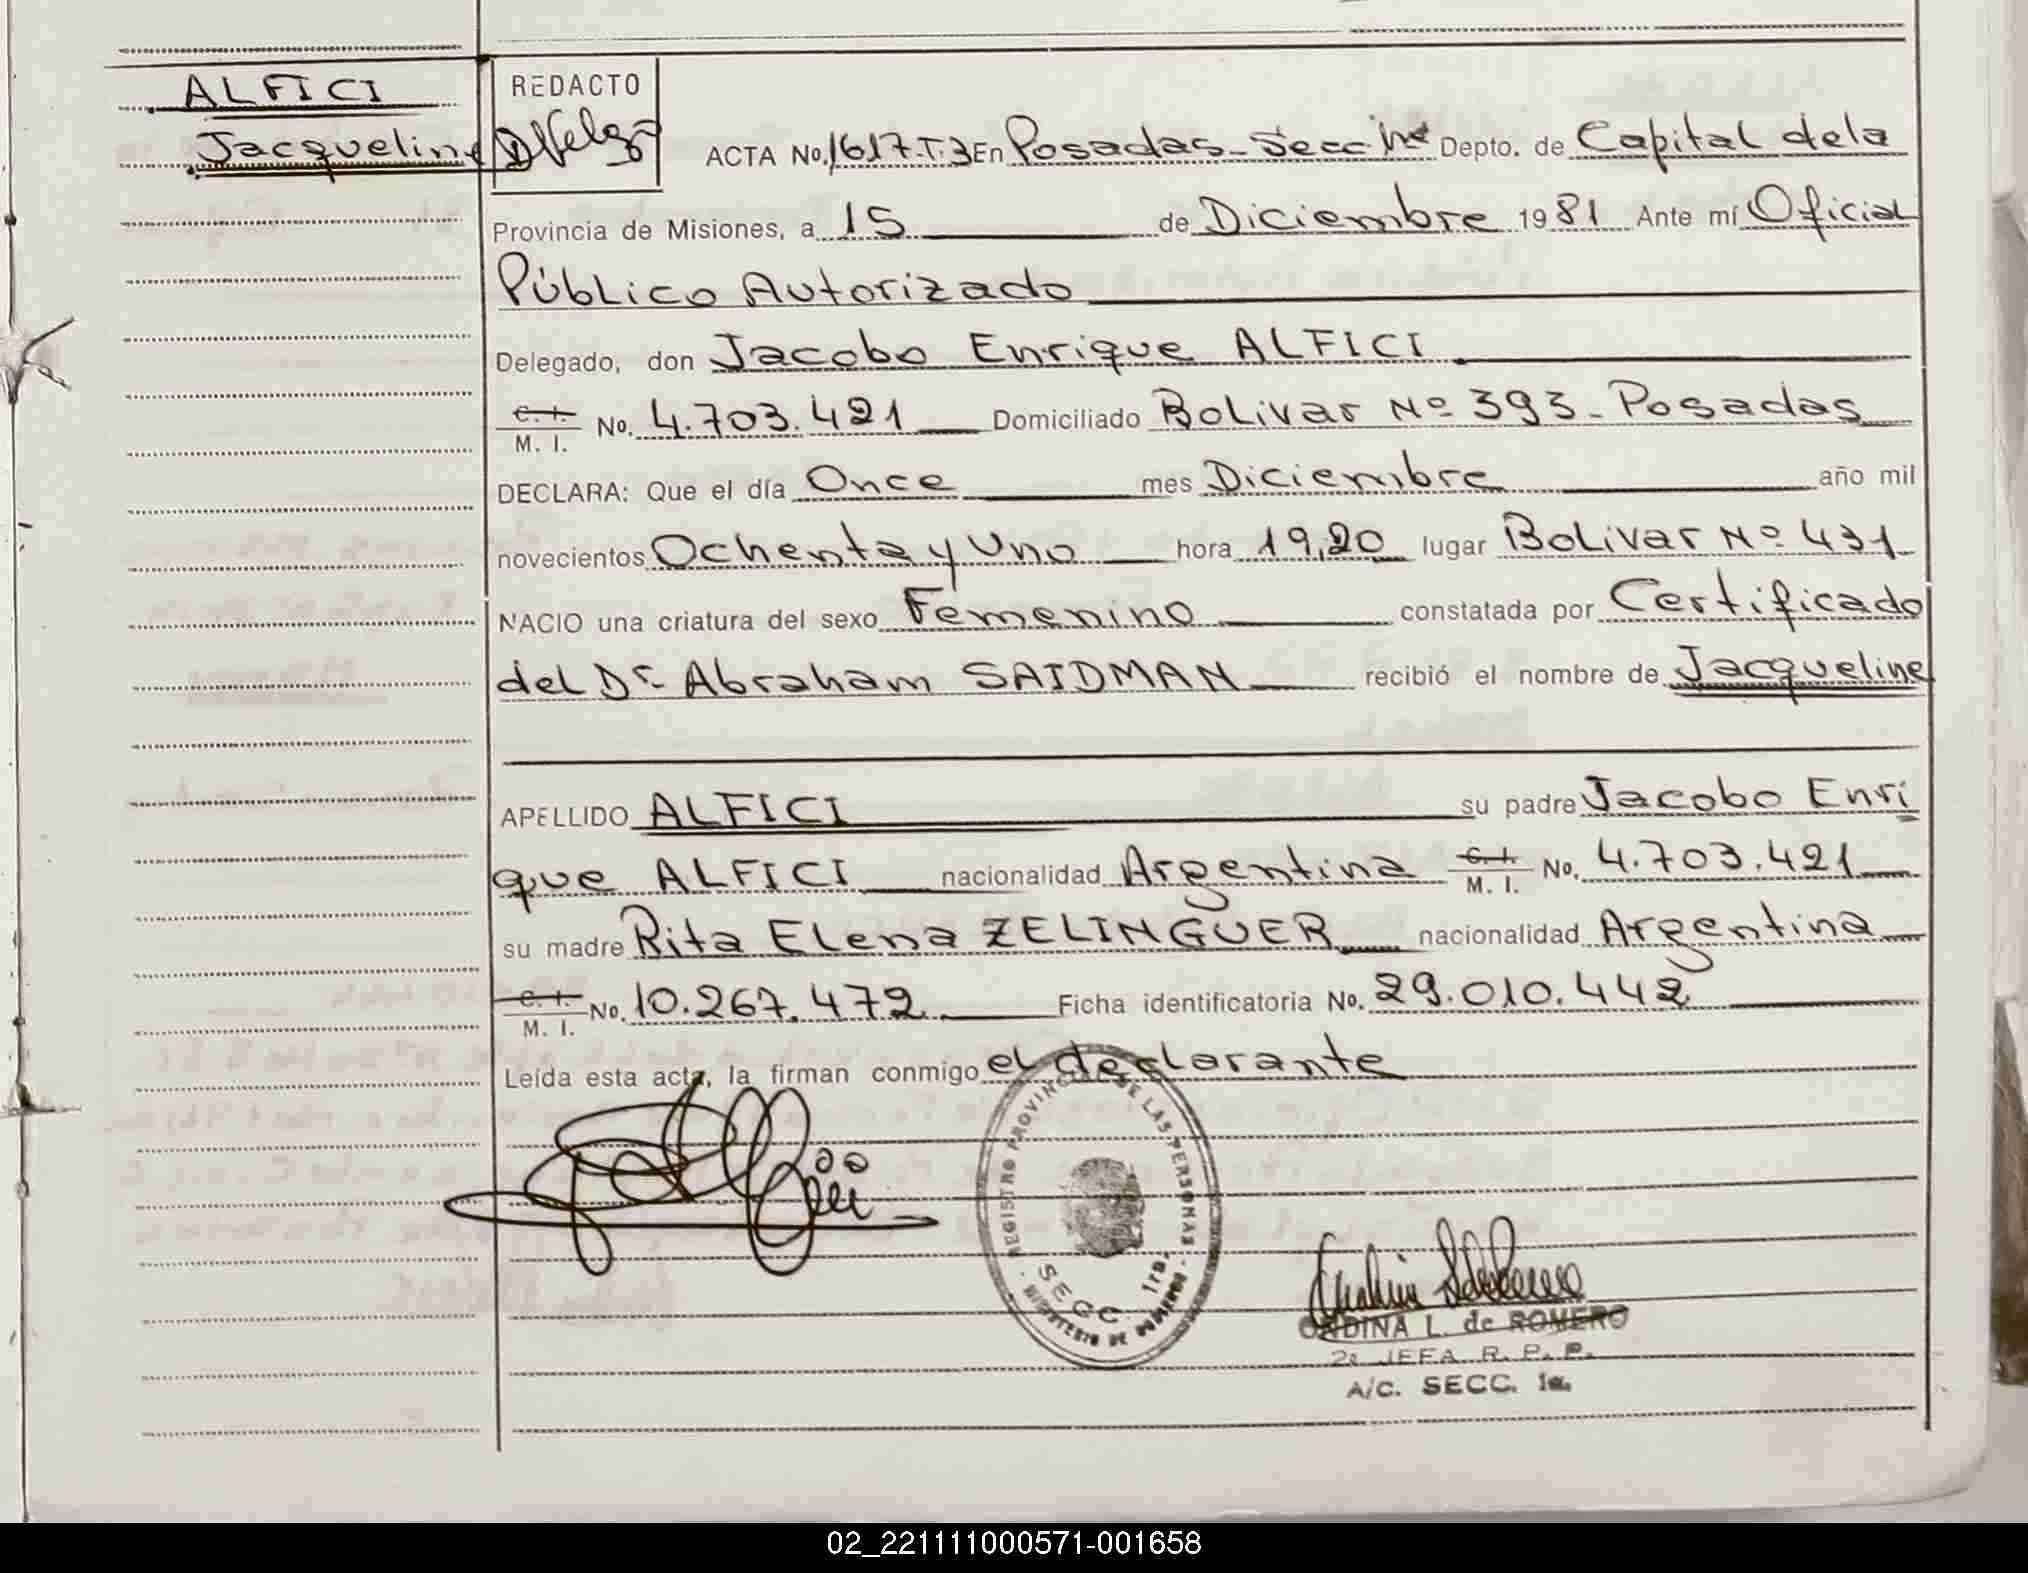 ALFICI
Jacqueline
REDACTO
ACTA No. 1617.T.3 En Posadas - Secc. 1ra Depto. de Capital de la
Provincia de Misiones, a 15 de Diciembre 1981 Ante mí Oficial
Público Autorizado
Delegado, don Jacobo Enrique ALFICI
C. I.
M. I. No. 4.703.421 Domiciliado Bolivar Nº 393 - Posadas
DECLARA: Que el día Once mes Diciembre año mil
novecientos Ochenta y Uno hora 19,20 lugar Bolivar Nº 431
NACIO una criatura del sexo Femenino constatada por Certificado
del Dr. Abraham SAIDMAN recibió el nombre de Jacqueline
APELLIDO ALFICI su padre Jacobo Enri
que ALFICI nacionalidad Argentina C. I. M. I. No. 4.703.421
su madre Rita Elena ZELINGUER nacionalidad Argentina
C. I.
M. I. No. 10.267.472 Ficha identificatoria No. 29.010.442
Leída esta acta, la firman conmigo el declarante
REGISTRO PROVINCIAL DE LAS PERSONAS
SECC. 1ra.
MINISTERIO DE GOBIERNO
ONDINA L. de ROMERO
2a JEFA R. P. P.
A/C. SECC. 1a.
02_221111000571-001658